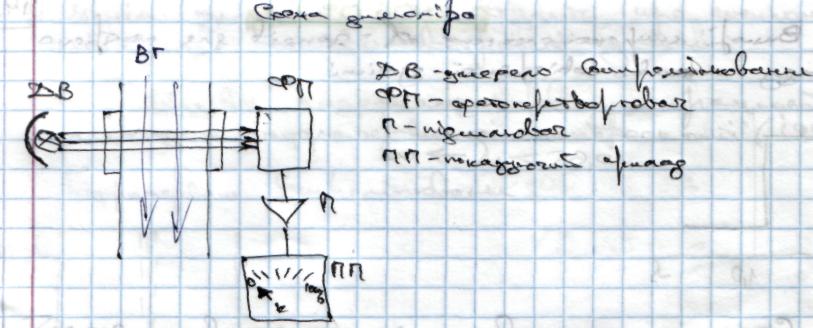 Схема димоміра
ВГ
ДВ
ФП
ДВ - джерело випромінювання
ФП - фотоперетворювач
П - підсилювач
ПП - показуючий прилад
П
ПП
0
100%
к